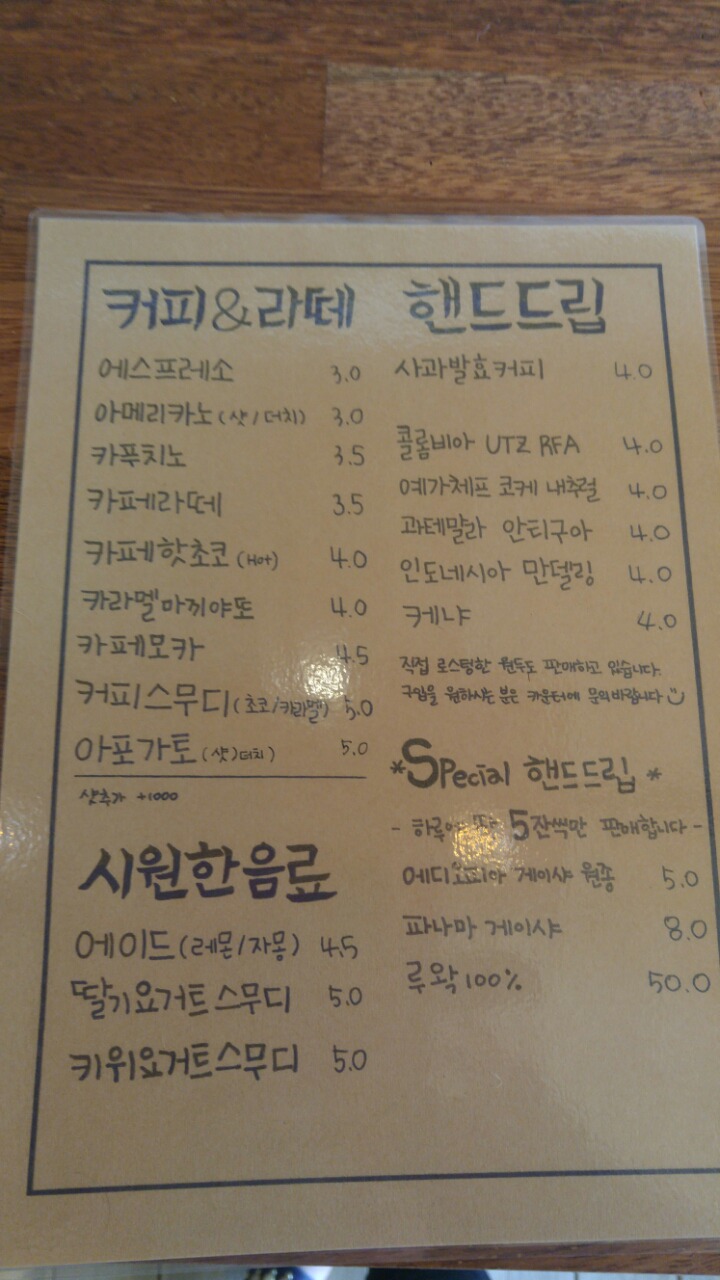 커피&라떼
에스프레소 3.0
아메리카노 (샷/더치) 3.0
카푸치노 3.5
카페라떼 3.5
카페핫초코 (Hot) 4.0
카라멜마끼야또 4.0
카페모카 4.5
커피스무디 (초코/카라멜) 5.0
아포가토 (샷)더치) 5.0
샷추가 +1000
시원한음료
에이드 (레몬/자몽) 4.5
딸기요거트스무디 5.0
키위요거트스무디 5.0
핸드드립
사과발효커피 4.0
콜롬비아 UTZ RFA 4.0
예가체프 코케 내추럴 4.0
과테말라 안티구아 4.0
인도네시아 만델링 4.0
케냐 4.0
직접 로스팅한 원두도 판매하고 있습니다.
구입을 원하시는 분은 카운터에 문의바랍니다
*Special 핸드드립 *
- 5잔씩만 판매합니다 -
에디오피아 게이샤 원종 5.0
파나마 게이샤 8.0
루왁 100% 50.0